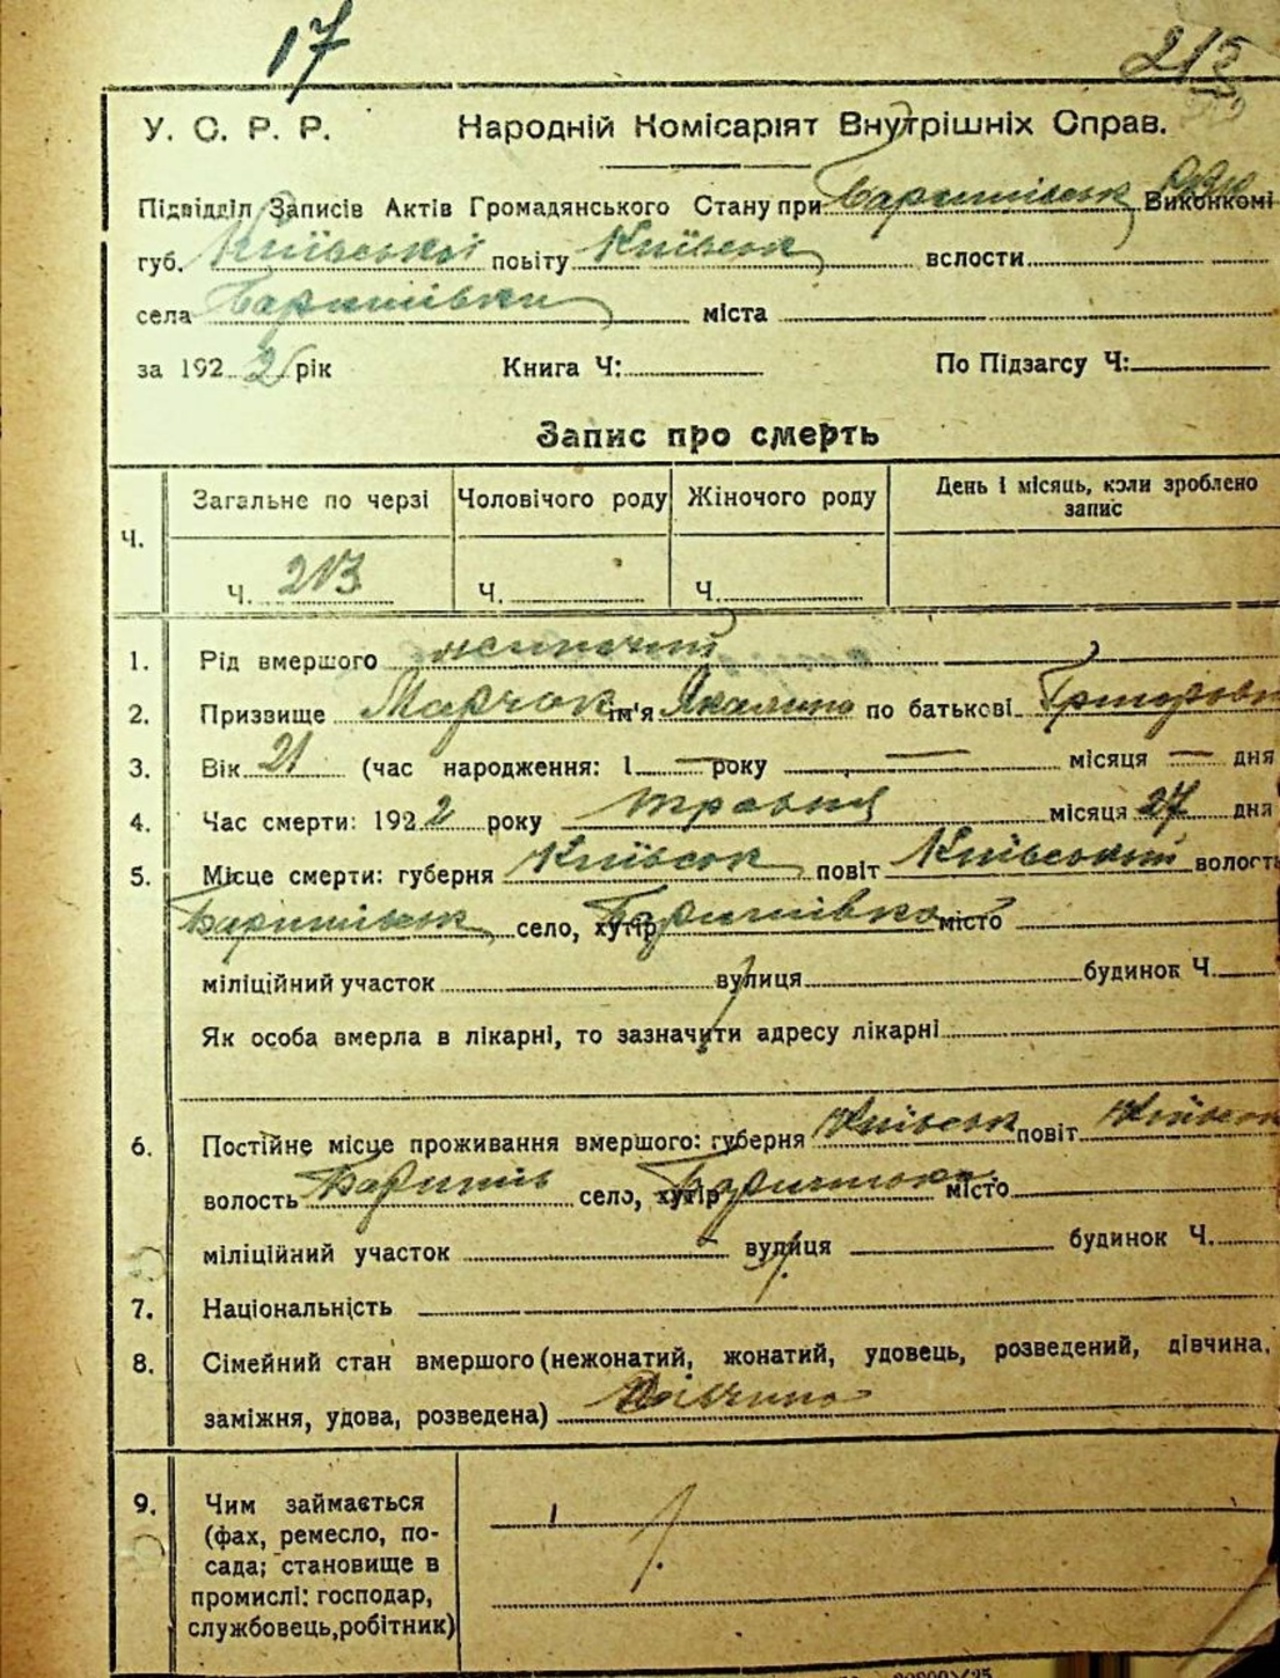 17 215
У. С. Р. Р. Народній Комісаріят Внутрішніх Справ.
Підвідділ Записів Актів Громадянського Стану при Баришівськ Виконкомі
губ. Київської повіту Київськ вслости
села Баришівки міста
за 192 2 рік Книга Ч: По Підзагсу Ч:
Запис про смерть
Загальне по черзі Чоловічого роду Жіночого роду День і місяць, коли зроблено
запис
Ч.
Ч. 213 Ч. Ч.
1. Рід вмершого жиночий
2. Призвище Марчак ім'я по батькові
3. Вік 21 (час народження: 1 — року — місяця — дня
4. Час смерти: 192 2 року травня місяця 27 дня
5. Місце смерти: губерня Київськ повіт Київський волость
Баришівськ село, хутір Баришівка місто
міліційний участок вулиця будинок Ч.
Як особа вмерла в лікарні, то зазначити адресу лікарні
6. Постійне місце проживання вмершого: губерня Київськ повіт Київськ
волость Баришів село, хутір місто
міліційний участок вулиця будинок Ч.
7. Національність
8. Сімейний стан вмершого (нежонатий, жонатий, удовець, розведений, дівчина,
заміжня, удова, розведена) Дівчина
9. Чим займається
(фах, ремесло, по-
сада; становище в
промислі: господар,
службовець, робітник)